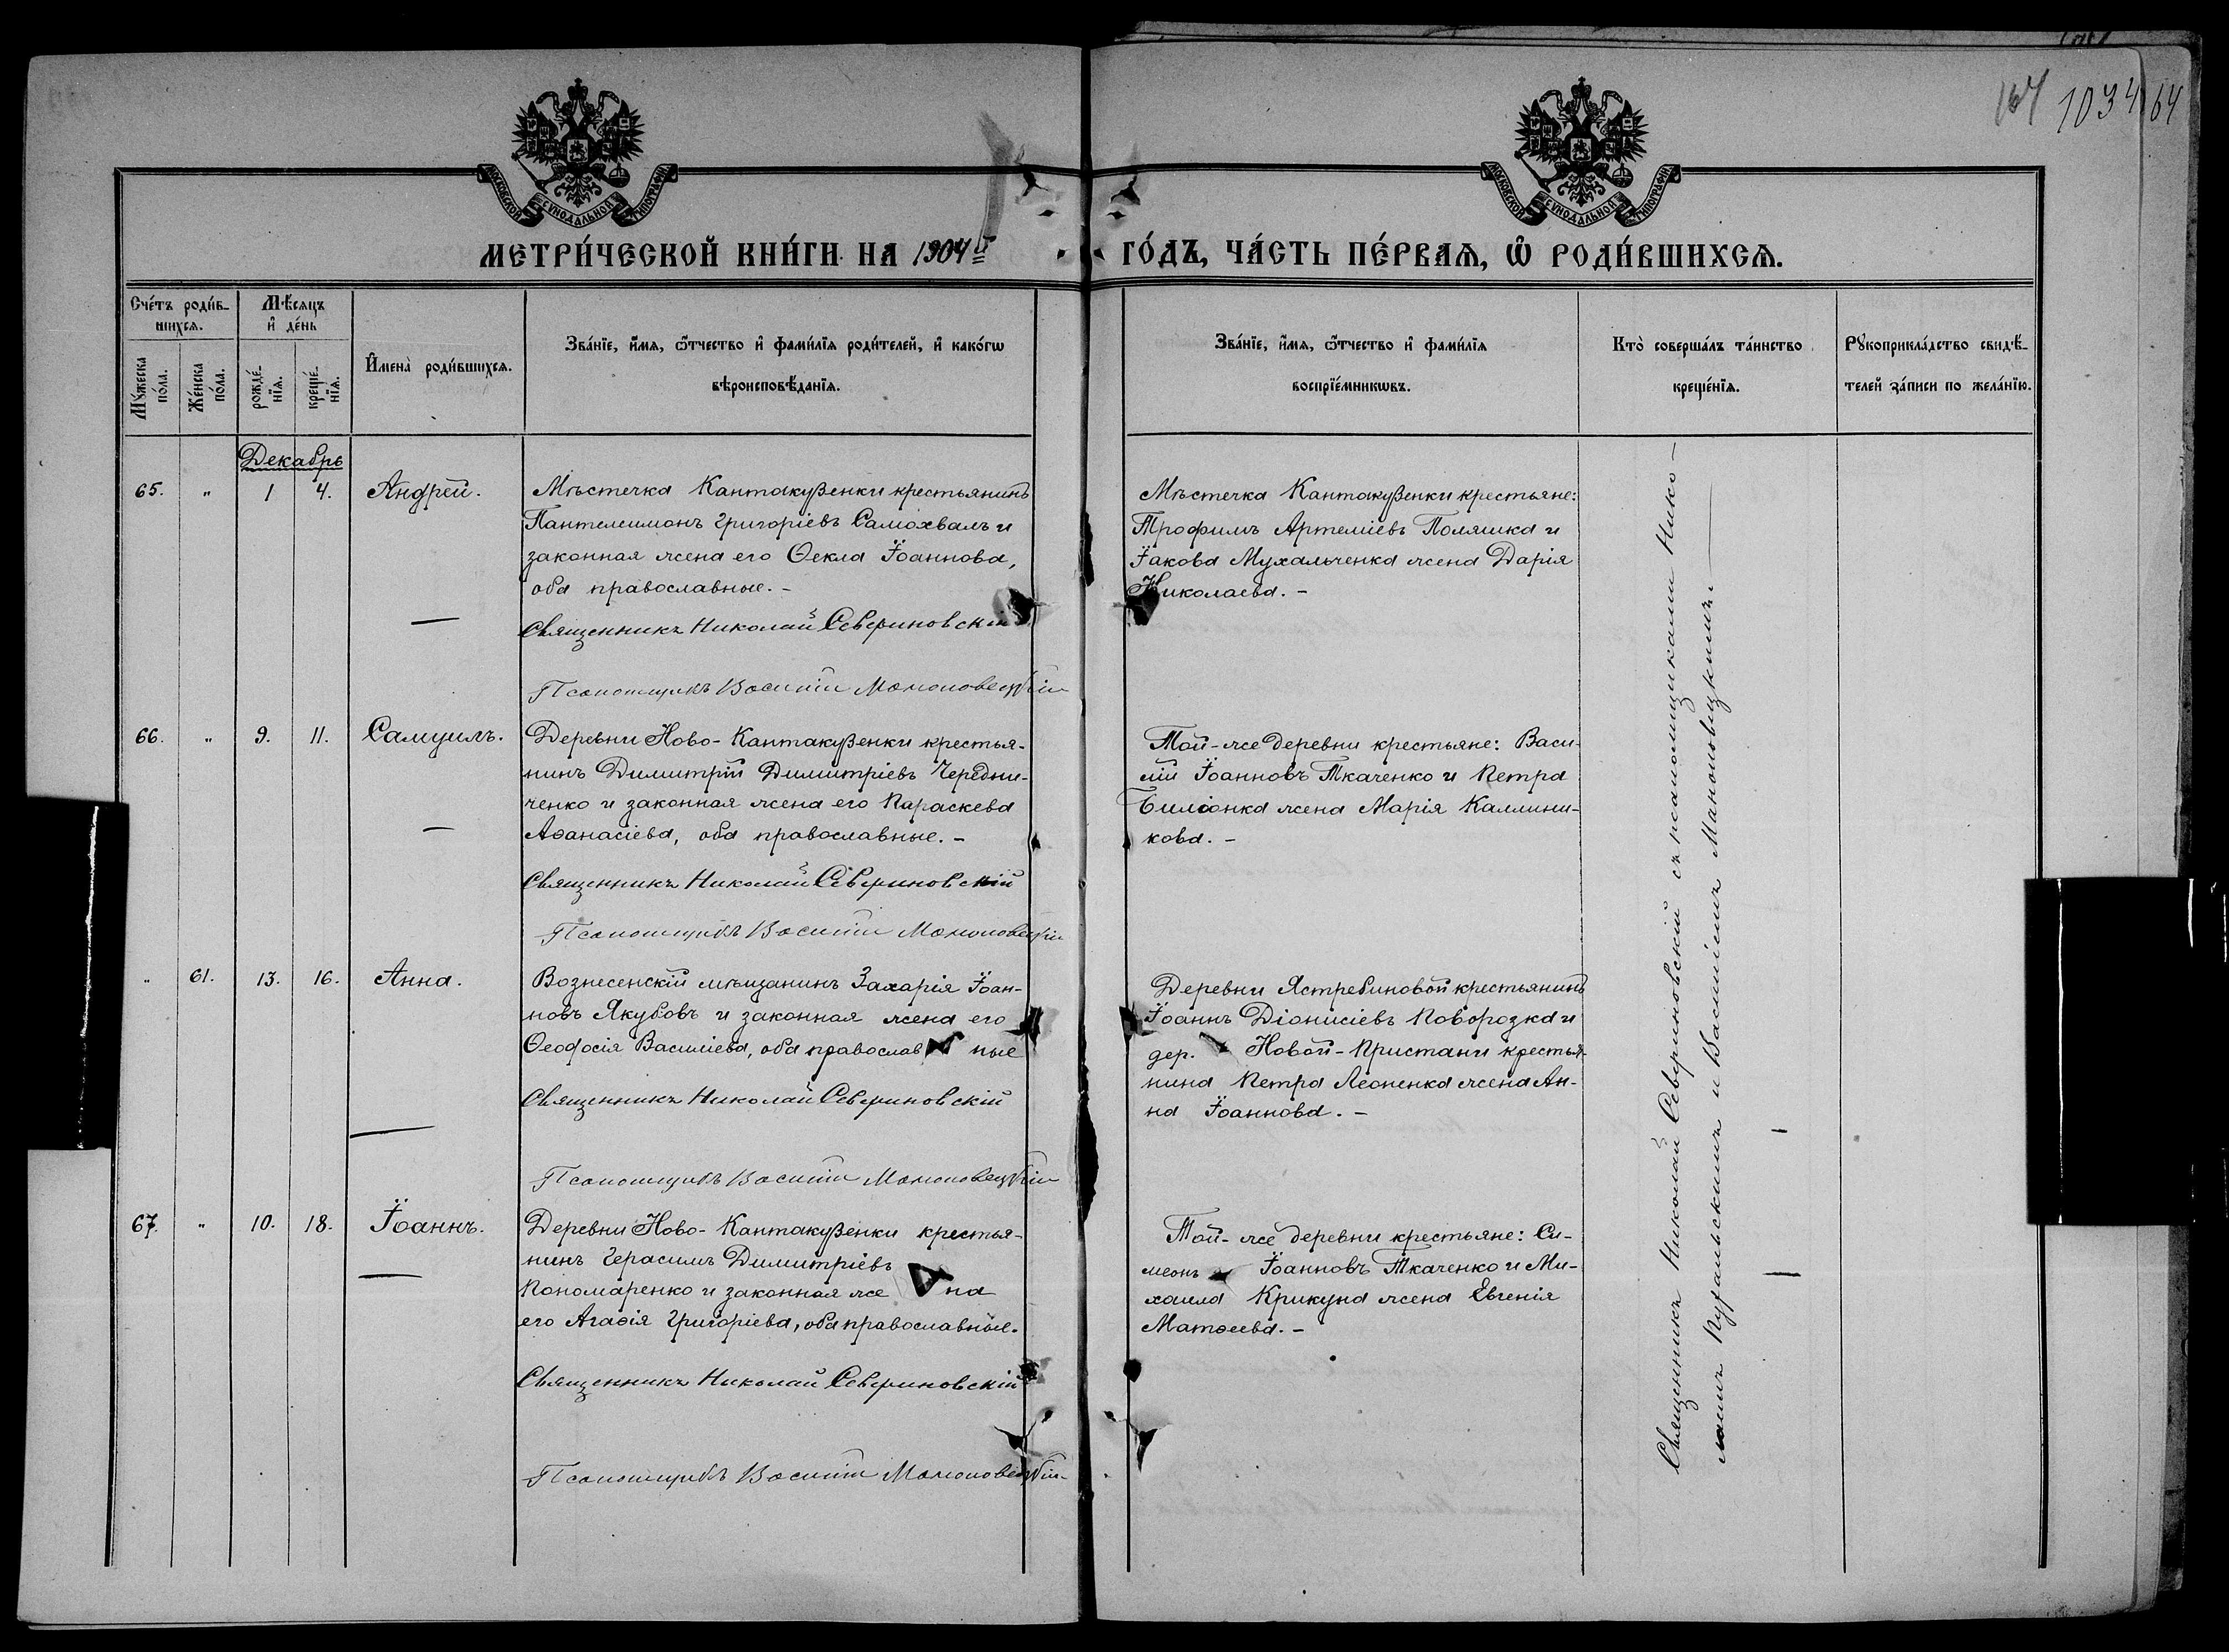 164 1034 64
МОСКОВСКОЙ СѴНОДАЛЬНОЙ ТИПОГРАФІИ
МОСКОВСКОЙ СѴНОДАЛЬНОЙ ТИПОГРАФІИ
МЕТРИ́ЧЕСКОЙ КНИ́ГИ НА 1904й ГО́ДЪ, ЧА́СТЬ ПЕ́РВАѦ, Ѽ РОДИ́ВШИХСѦ.
Сче́тъ роди́в-
шихсѧ.
Мꙋ́жеска по́ла.
Же́нска по́ла.
Мѣ́сѧцъ
и҆ де́нь
рожде́-нїѧ.
креще́-нїѧ.
И҆мена̀ роди́вшихсѧ.
Зва́нїе, и҆́мѧ, ѻ҆́тчество и҆ фами́лїѧ роди́телей, и҆ како́гѡ
вѣроисповѣ́данїѧ.
Зва́нїе, и҆́мѧ, ѻ҆́тчество и҆ фами́лїѧ
воспрїе́мникѡвъ.
Кто̀ соверша́лъ та́инство
креще́нїѧ.
Рꙋкоприкла́дство свидѣ́-
телей за́писи по жела́нїю.
Декабрь
65. " 1 4. Андрей.
Мѣстечка Кантакузенки крестьянинъ
Пантелеимонъ Григоріевъ Самохвалъ и
законная жена его Ѳекла Іоаннова,
оба православные. -
Священникъ Николай Севериновскій
Псаломщикъ Василій Маноповецкій
Мѣстечка Кантакузенки крестьяне:
Трофимъ Артеміевъ Поляшка и
Іакова Мухальченка жена Дарія
Николаева. -
66. " 9. 11. Самуилъ.
Деревни Ново-Кантакузенки крестья-
нинъ Димитрій Димитріевъ Чередни-
ченко и законная жена его Параскева
Аѳанасіева, оба православные. -
Священникъ Николай Севериновскій
Псаломщикъ Василій Маноповецкій
Той-же деревни крестьяне: Васи-
лій Іоанновъ Ткаченко и Петра
Билионка жена Марія Каллини-
кова. -
" 61. 13. 16. Анна.
Вознесенскій мѣщанинъ Захарія Іоан-
новъ Якубовъ и законная жена его
Ѳеодосія Василіева, оба православ ные
Священникъ Николай Севериновскій
Псаломщикъ Василій Маноповецкій
Деревни Ястребиновой крестьянинъ
Іоаннъ Діонисіевъ Поворозка и
дер. Новой-Пристани крестья-
нина Петра Леоненка жена Ан-
на Іоаннова. -
67. " 10. 18. Іоаннъ.
Деревни Ново-Кантакузенки крестья-
нинъ Герасимъ Димитріевъ
Пономаренко и законная же на
его Агаѳія Григоріева, оба православные.
Священникъ Николай Севериновскій
Псаломщикъ Василій Маноповецкій
Той-же деревни крестьяне: Си-
меонъ Іоанновъ Ткаченко и Ми-
хаила Крикуна жена Евгенія
Матѳеева. -
Священникъ Николай Севериновскій съ псаломщиками Нико-
лаемъ и Василіемъ Маноповецкимъ.